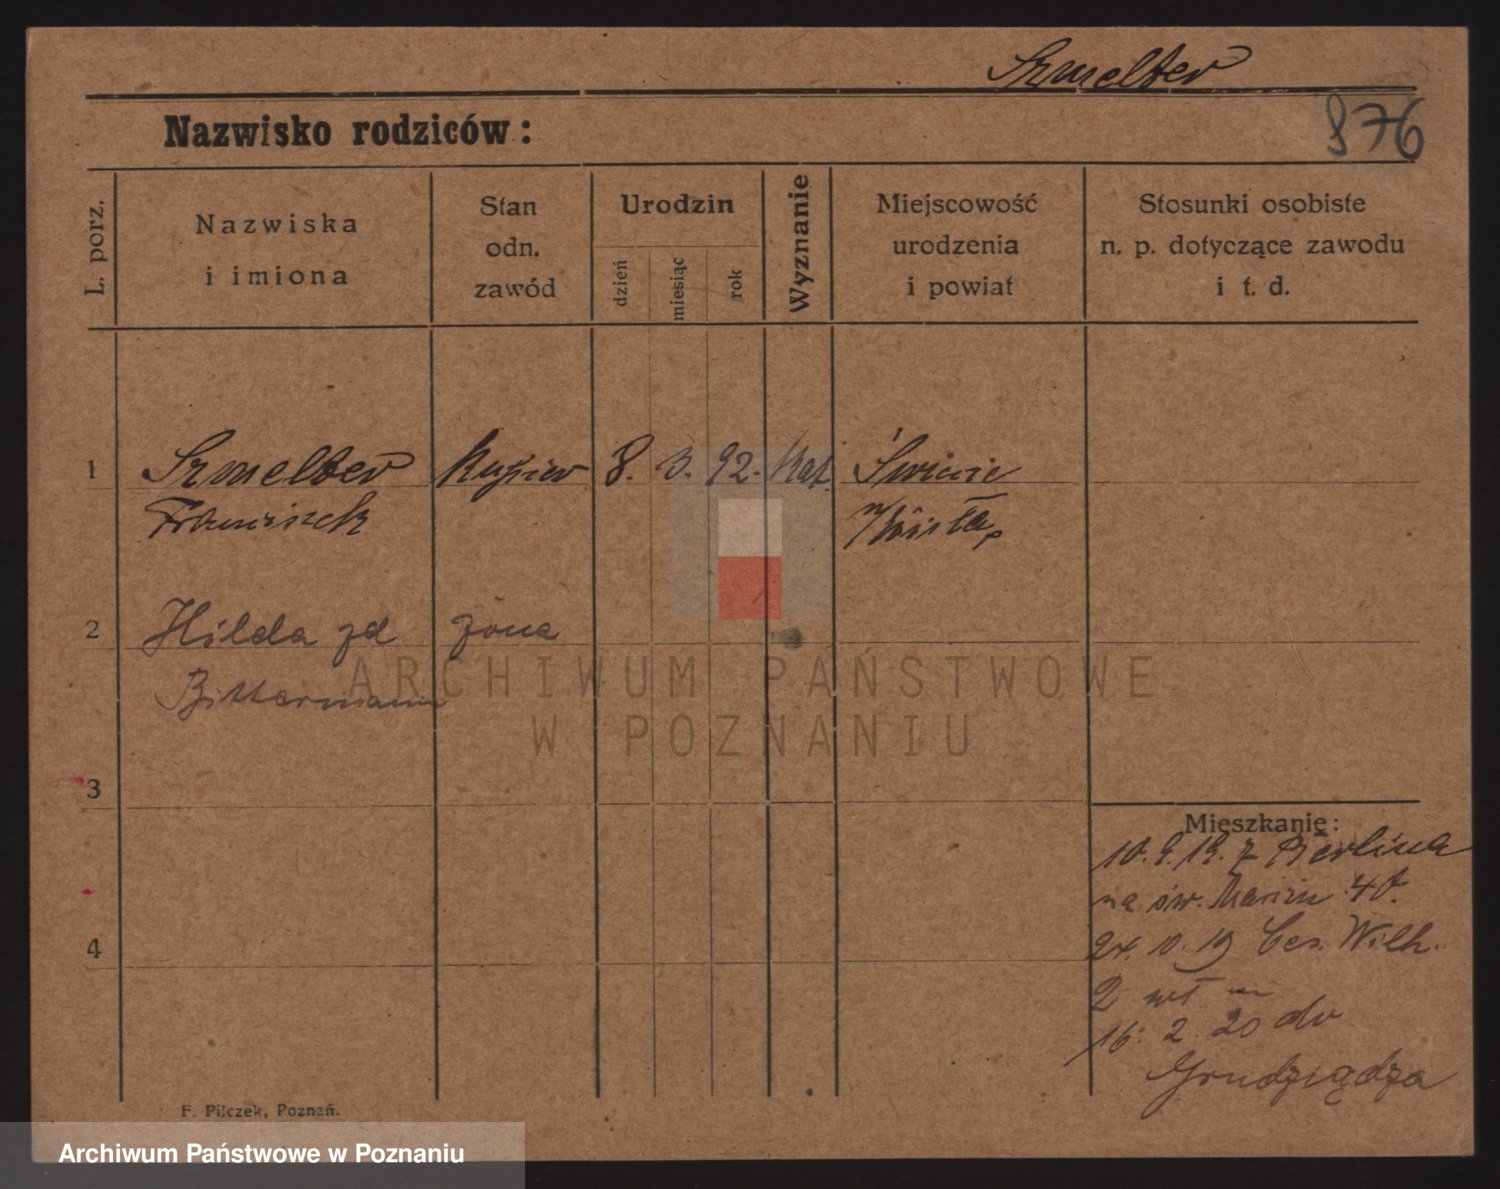 Szmelter
876
Nazwisko rodziców:
L. porz.
Nazwiska
i imiona
Stan
odn.
zawód
Urodzin
dzień
miesiąc
rok
Wyznanie
Miejscowość
urodzenia
i powiat
Stosunki osobiste
n. p. dotyczące zawodu
i t. d.
1
Szmelter kupiec 8. 3. 92. Kat. Świecie
Franciszek n/Wisłą
2
Hilda zd żona
Bittermann
3
4
Mieszkanie:
10. 9. 19. z Berlina
na św. Marcin 40.
24. 10. 19 Ces. Wilh.
2
16. 2. 20 do
Grudziądza
F. Pilczek, Poznań.
ARCHIWUM PAŃSTWOWE
W POZNANIU
Archiwum Państwowe w Poznaniu